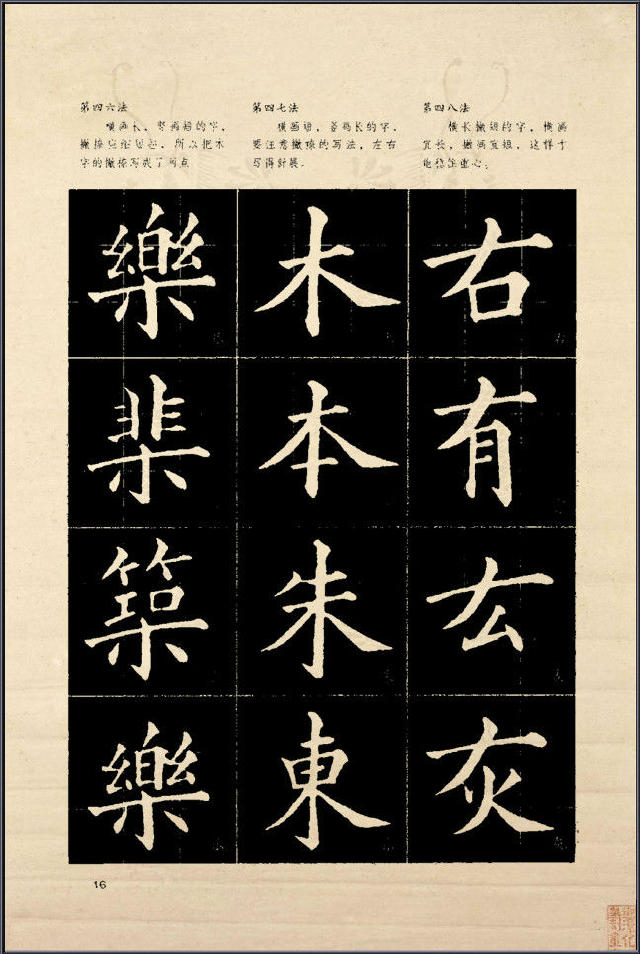 第四六法
横画长，竖画短的字，
撇捺宜缩短些，所以把木
字的撇捺写成了两点
第四七法
横画短，竖画长的字，
要注意撇捺的写法，左右
写得舒展。
第四八法
横长撇短的字，横画
宜长，撇画宜短，这样才
能稳住重心。
樂
棐
築
樂
木
本
朱
東
右
有
厷
灰
16